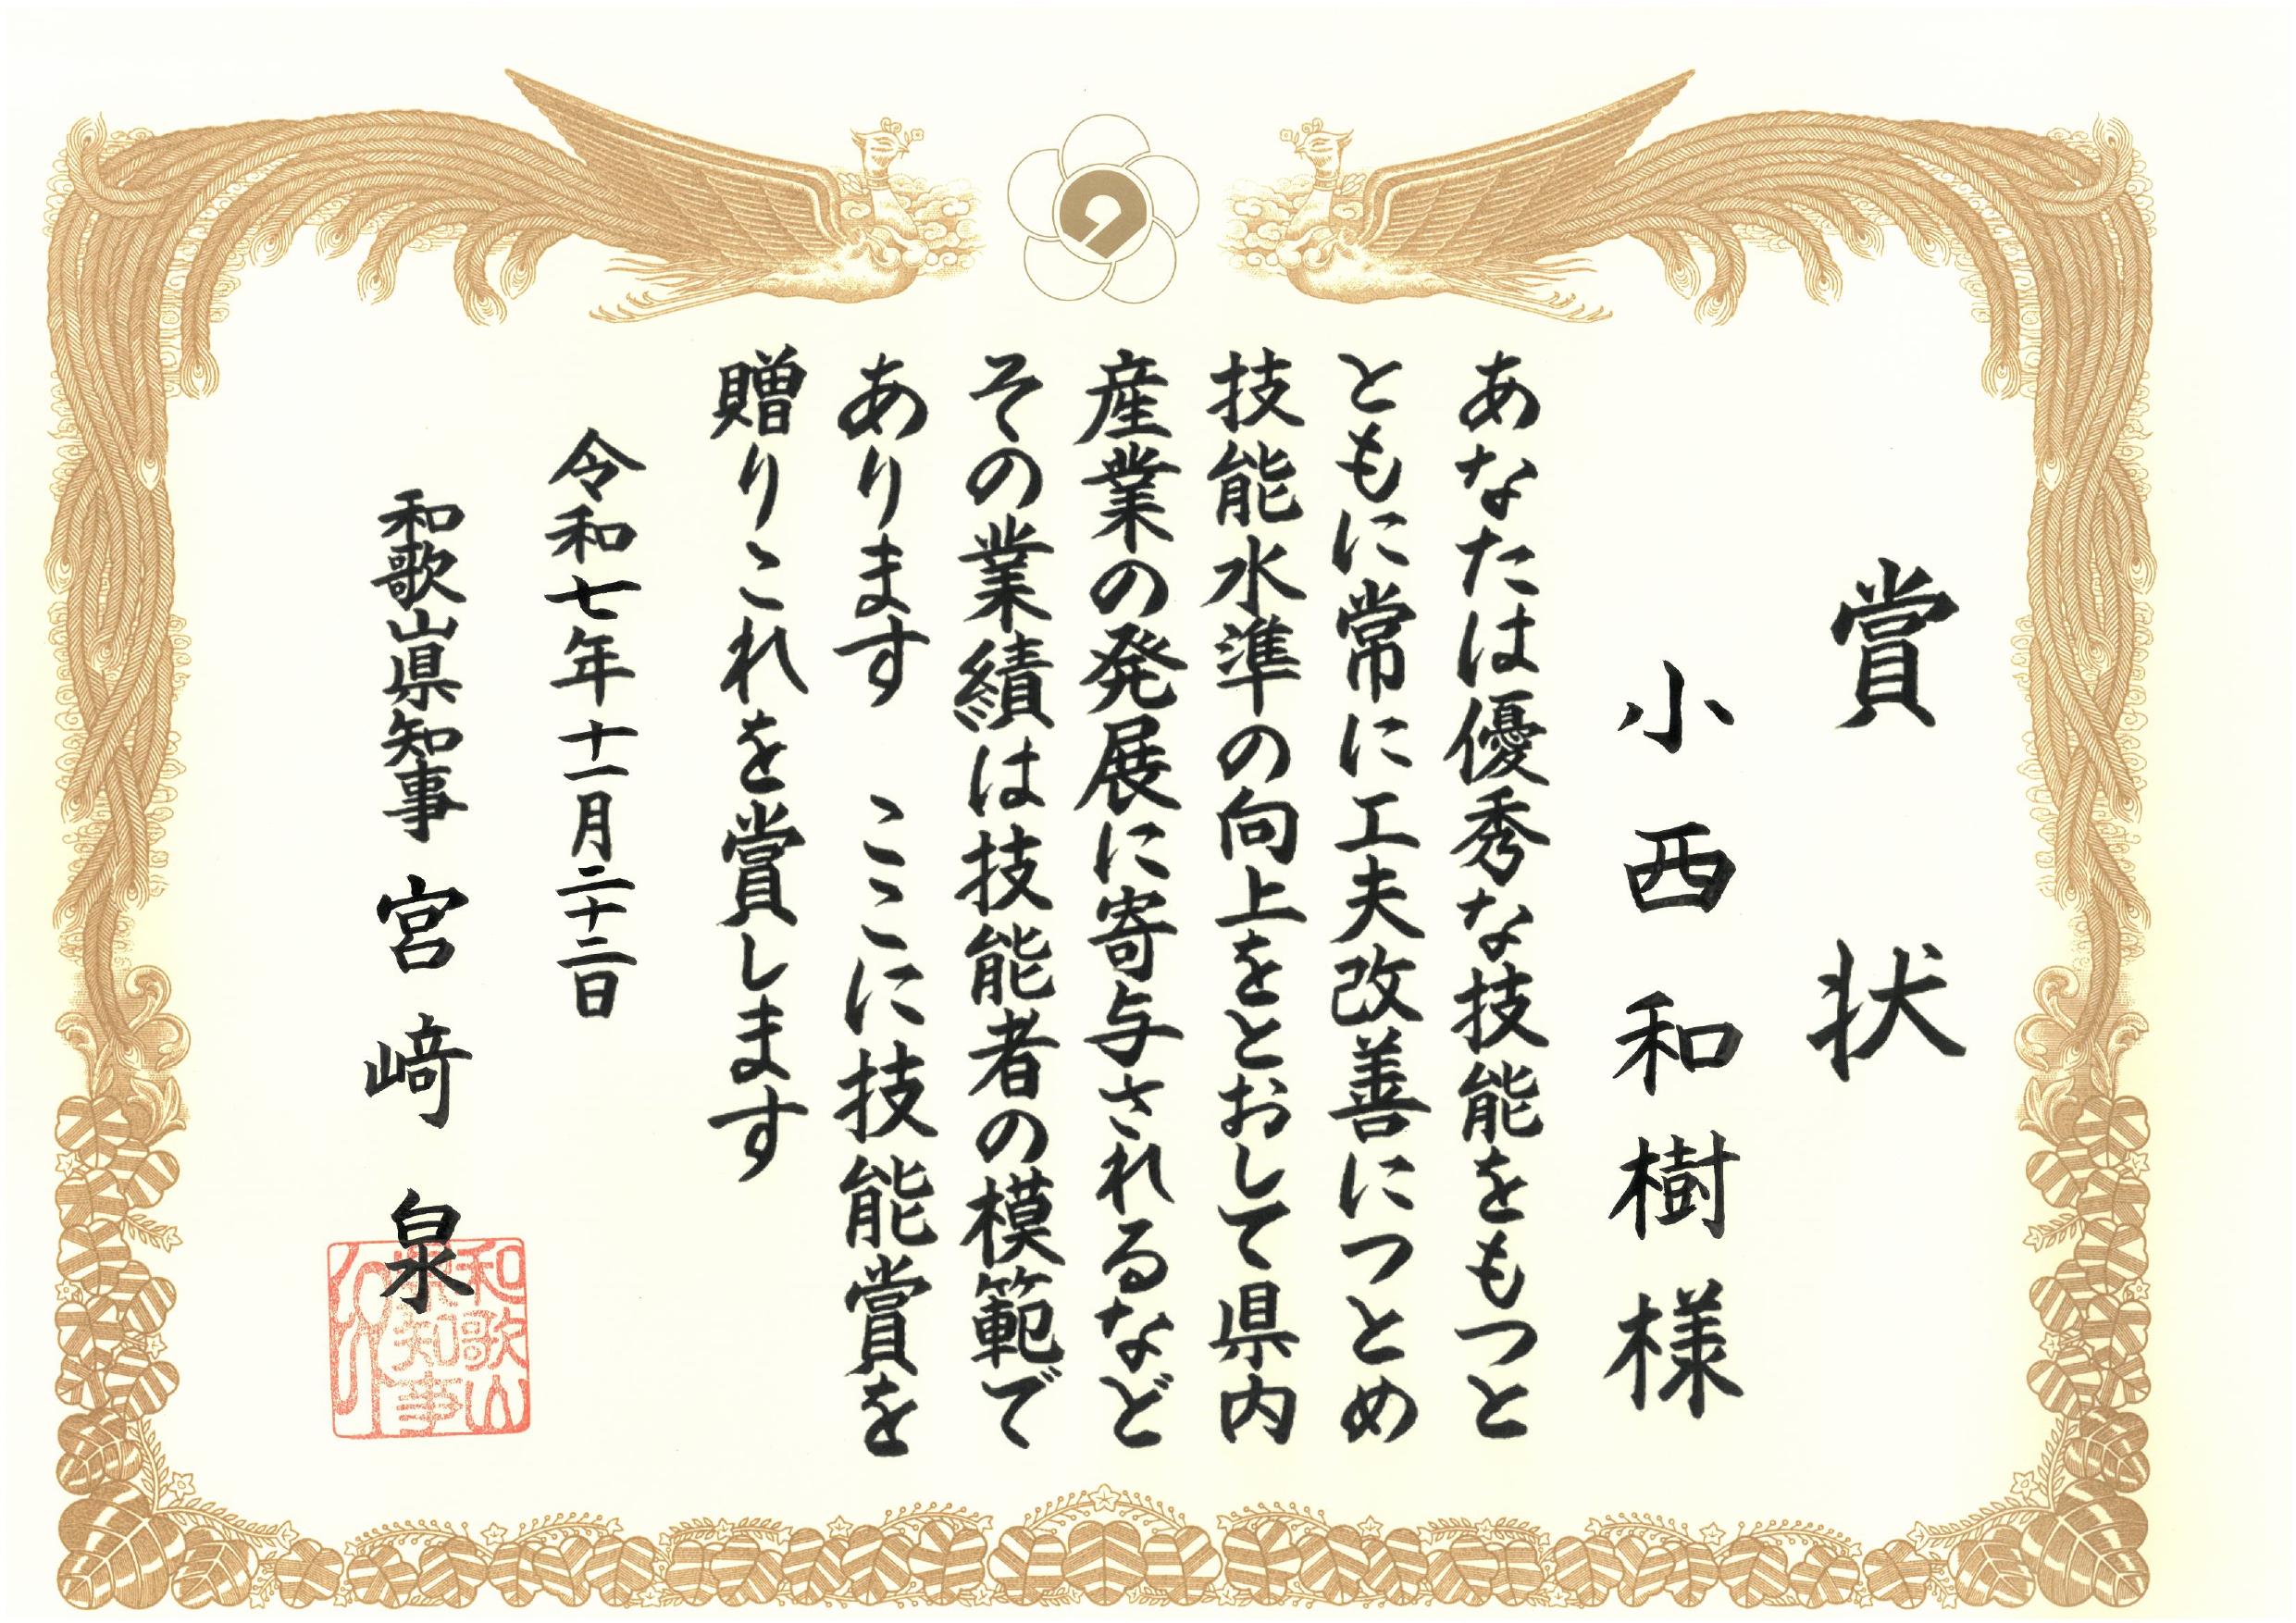 賞状
小西和樹様
あなたは優秀な技能をもつと
ともに常に工夫改善につとめ
技能水準の向上をとおして県内
産業の発展に寄与されるなど
その業績は技能者の模範で
あります　ここに技能賞を
贈りこれを賞します
令和七年十一月二十二日
和歌山県知事 宮﨑泉
和歌山
県知事